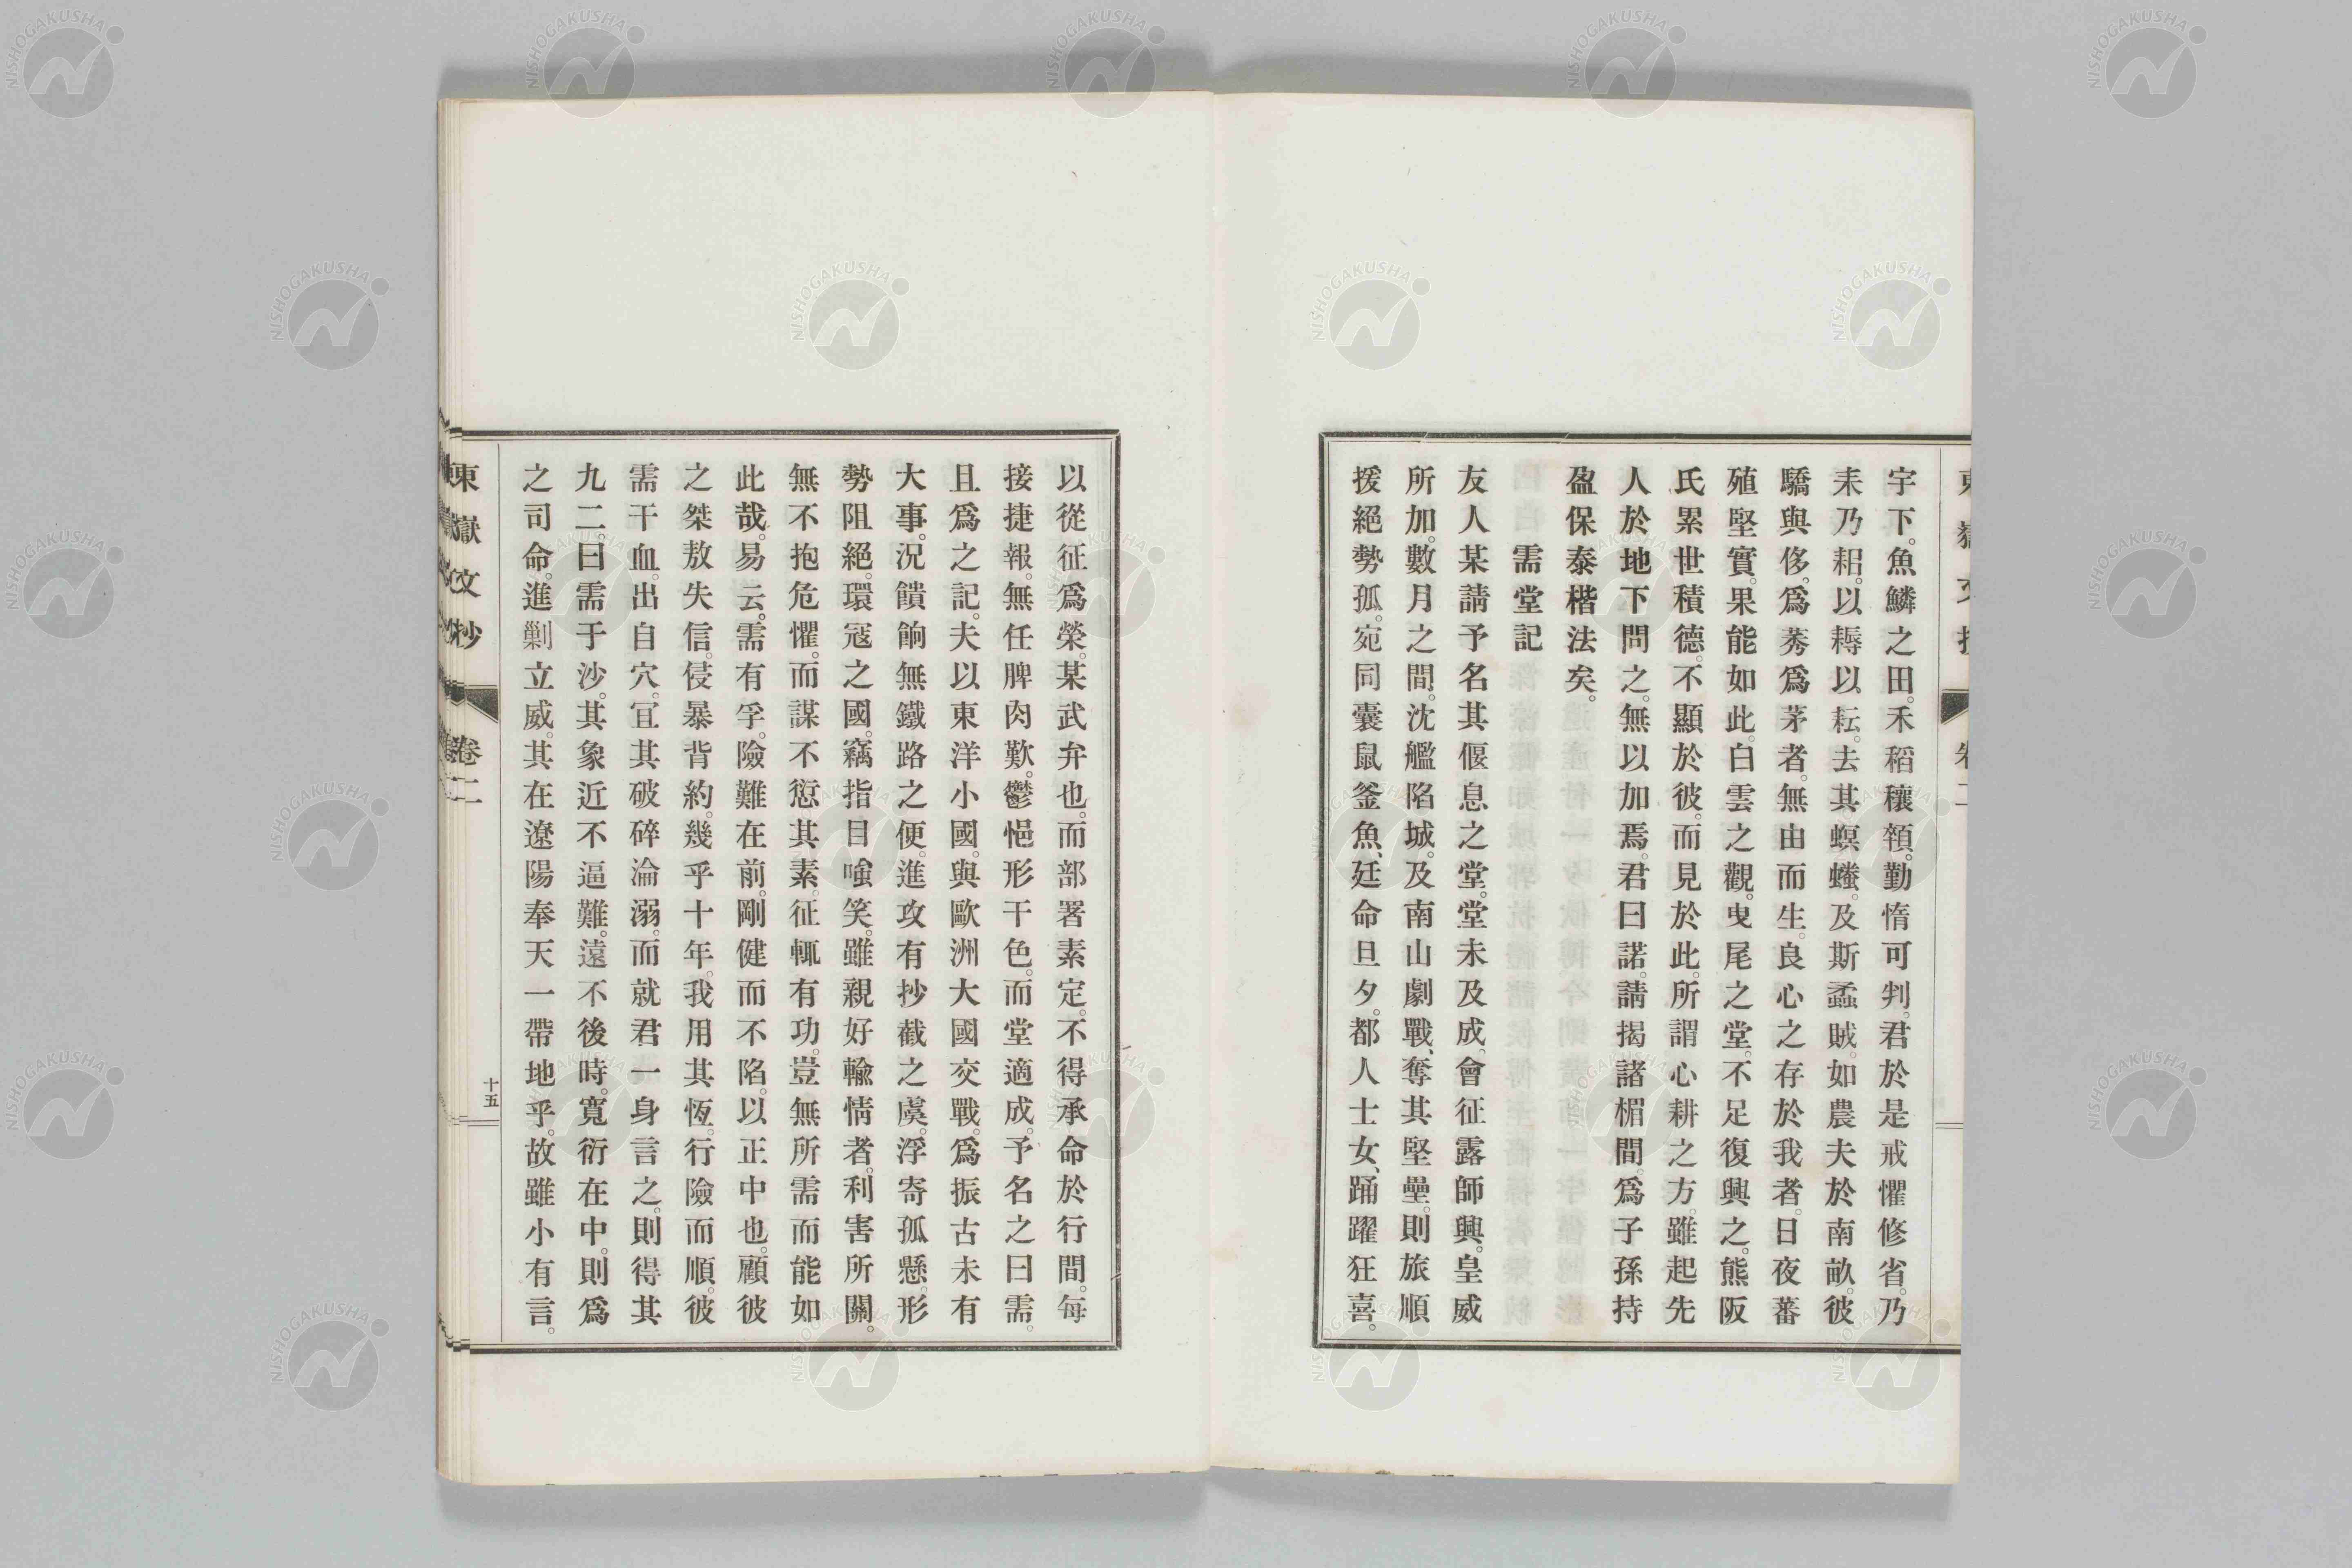 宇下。魚鱗之田。禾稻穰穎。勤惰可判。君於是戒懼修省。乃
耒乃耜。以耨以耘。去其螟螣。及斯蟊賊。如農夫於南畝。彼
驕與侈。爲莠爲茅者。無由而生。良心之存於我者。日夜蕃
殖堅實。果能如此。白雲之觀。曳尾之堂。不足復興之。熊阪
氏累世積德。不顯於彼。而見於此。所謂心耕之方。雖起先
人於地下問之。無以加焉。君曰諾。請揭諸楣間。爲子孫持
盈保泰楷法矣。
需堂記
友人某請予名其偃息之堂。堂未及成、會征露師興。皇威
所加。數月之間。沈艦陷城。及南山劇戰、奪其堅壘。則旅順
援絕勢孤。宛同囊鼠釜魚、廷命旦夕。都人士女、踊躍狂喜。
以從征爲榮。某武弁也。而部署素定。不得承命於行間。每
接捷報。無任脾肉歎。鬱悒形干色。而堂適成。予名之曰需。
且爲之記。夫以東洋小國。與歐洲大國交戰。爲振古未有
大事。況饋餉無鐵路之便。進攻有抄截之虞。浮寄孤懸。形
勢阻絕。環寇之國。竊指目嗤笑。雖親好輸情者。利害所關。
無不抱危懼。而謀不愆其素。征輒有功。豈無所需而能如
此哉。易云。需有孚。險難在前。剛健而不陷。以正中也。顧彼
之桀敖失信。侵暴背約。幾乎十年。我用其恆。行險而順。彼
需干血。出自穴。宜其破碎淪溺。而就君一身言之。則得其
九二。曰需于沙。其象近不逼難。遠不後時。寬衍在中。則爲
之司命。進剿立威。其在遼陽奉天一帶地乎。故雖小有言。
東嶽文抄
卷二
十五